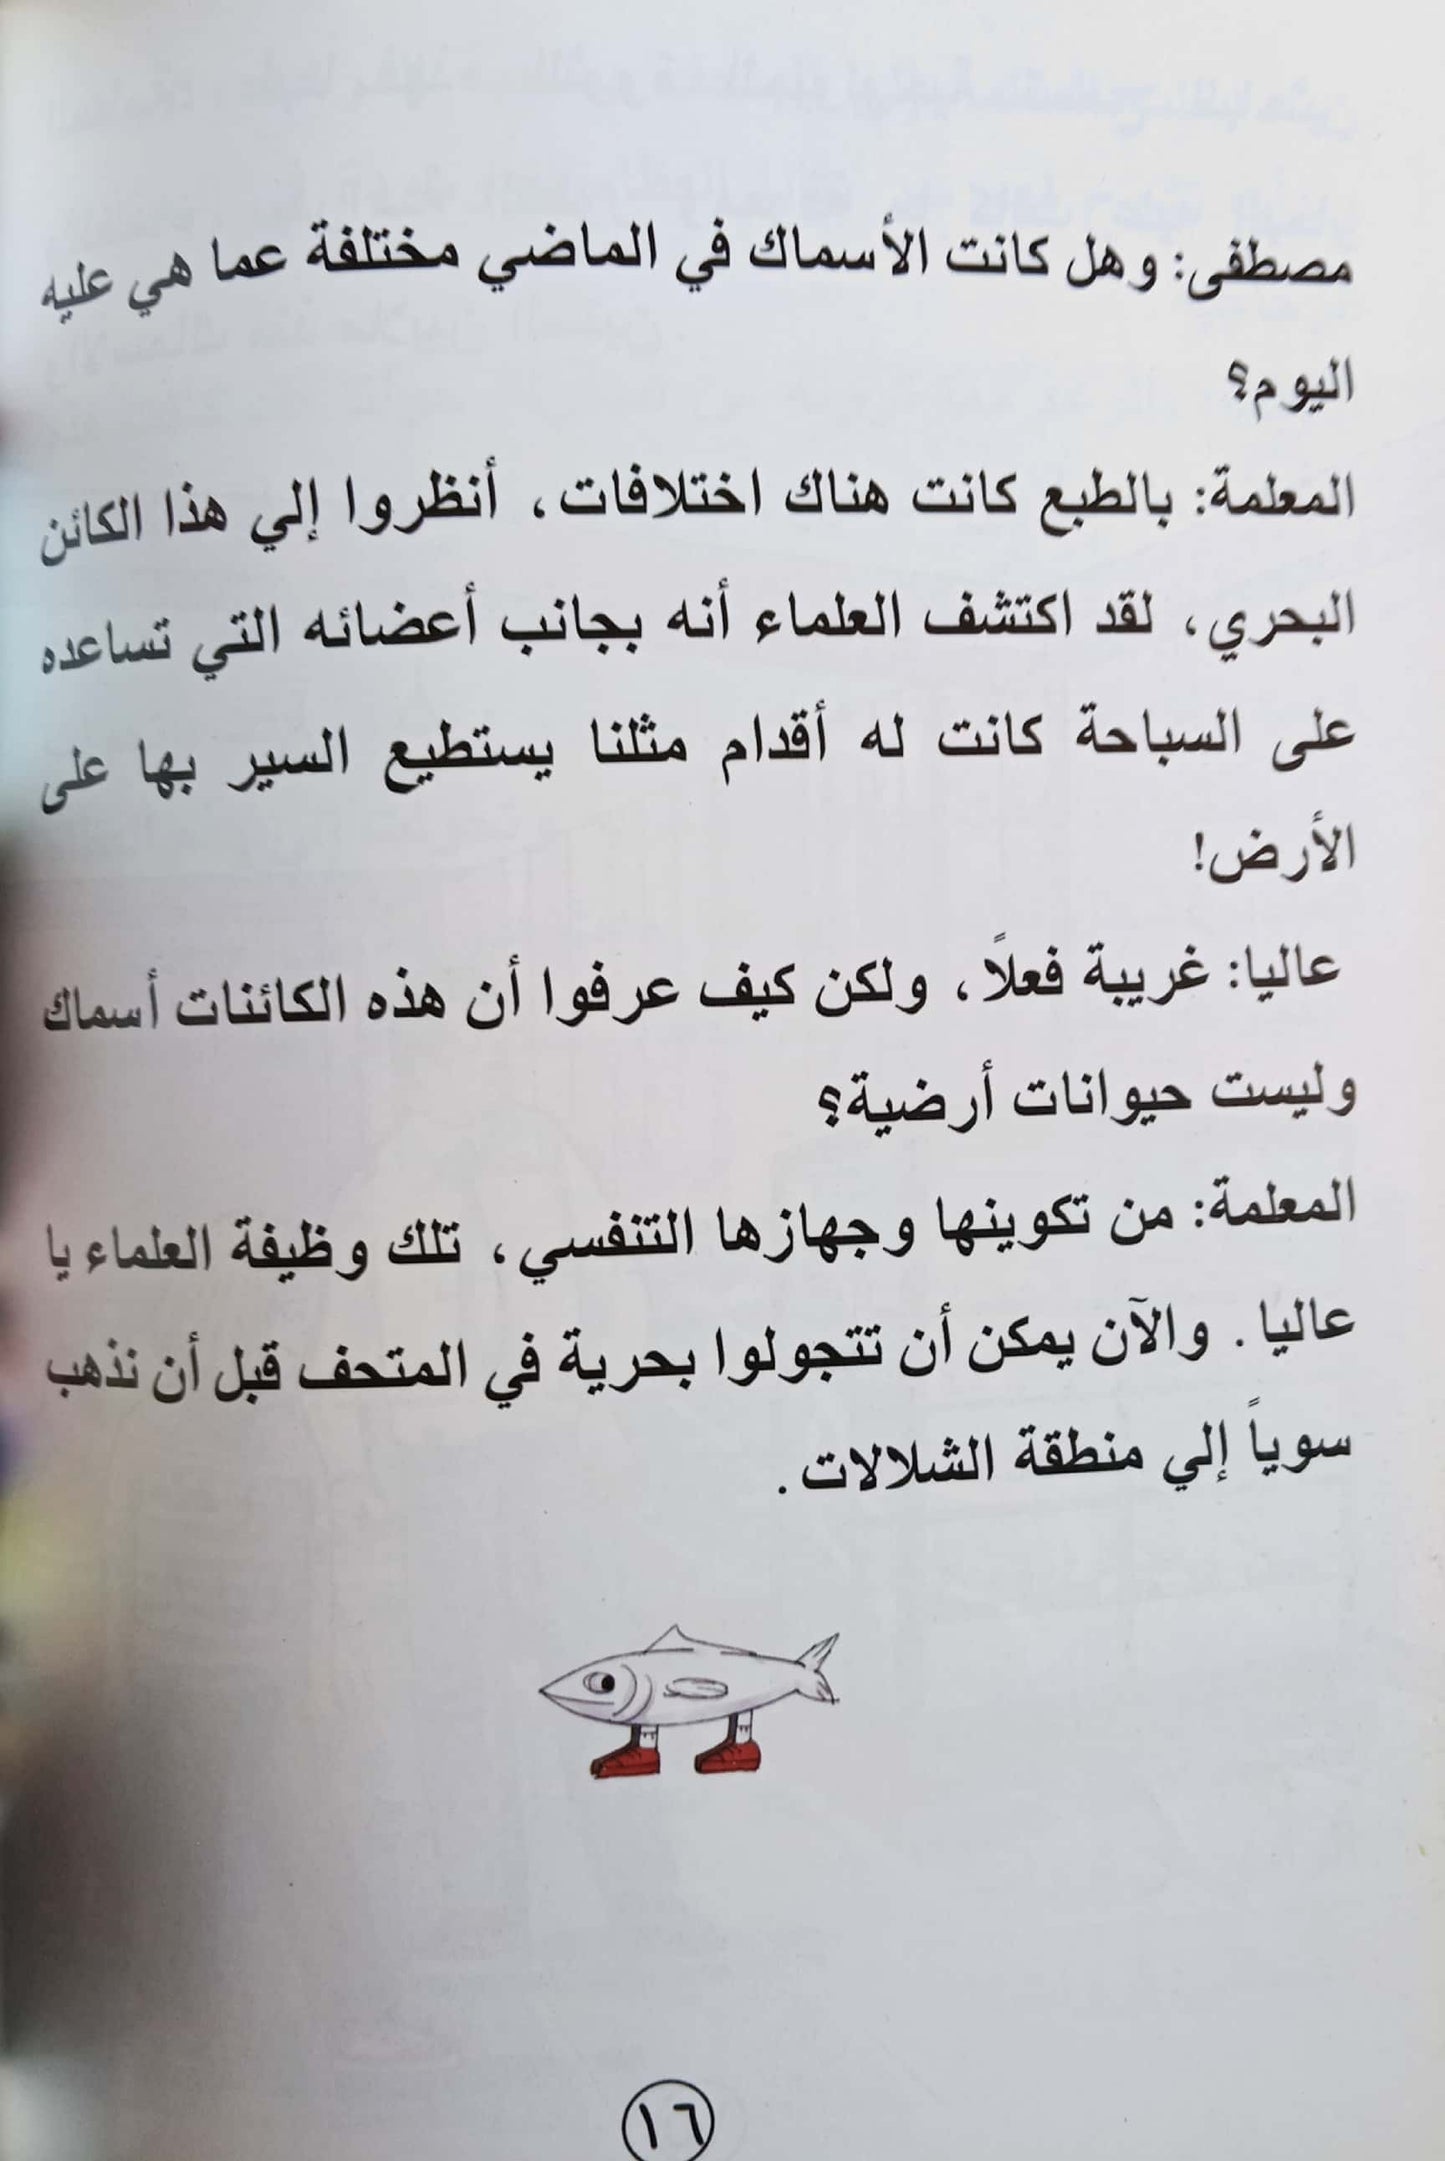 مصطفى: وهل كانت الأسماك في الماضي مختلفة عما هي عليه
اليوم؟
المعلمة: بالطبع كانت هناك اختلافات، أنظروا إلي هذا الكائن
البحري، لقد اكتشف العلماء أنه بجانب أعضائه التي تساعده
على السباحة كانت له أقدام مثلنا يستطيع السير بها على
الأرض!
عاليا: غريبة فعلاً، ولكن كيف عرفوا أن هذه الكائنات أسماك
وليست حيوانات أرضية؟
المعلمة: من تكوينها وجهازها التنفسي، تلك وظيفة العلماء يا
عاليا. والآن يمكن أن تتجولوا بحرية في المتحف قبل أن نذهب
سوياً إلي منطقة الشلالات.
١٦